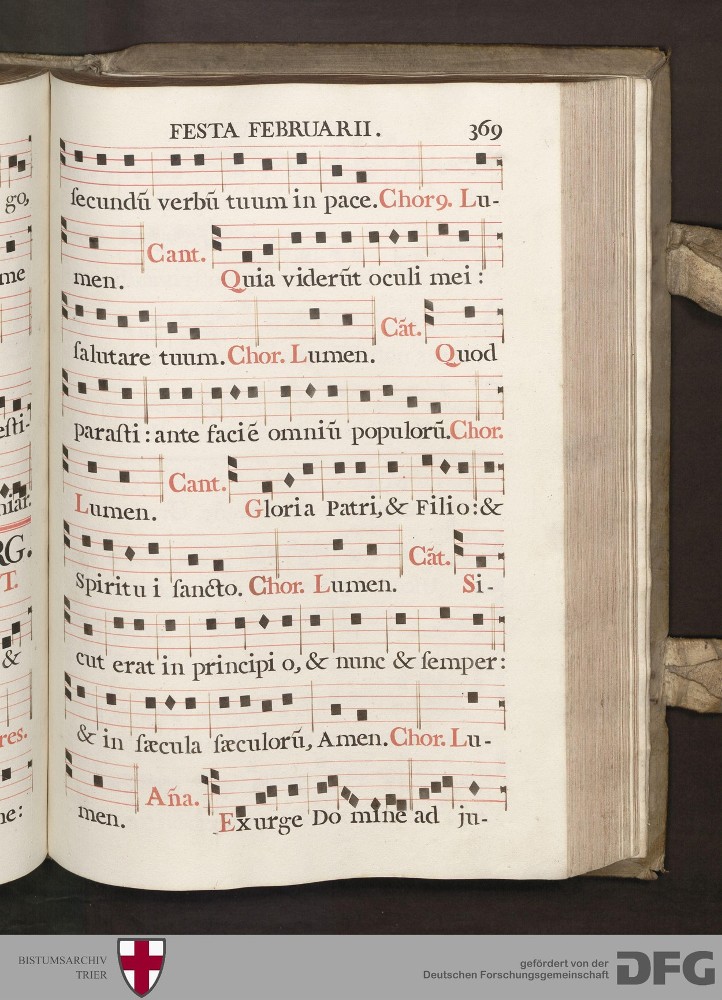 FESTA FEBRUARII. 369
secundū verbū tuum in pace. Chorꝰ. Lu-
men. Cant. Quia viderūt oculi mei :
ſalutare tuum. Chor. Lumen. Cāt. Quod
paraſti : ante faciē omniū populorū. Chor.
Lumen. Cant. Gloria Patri, & Filio : &
Spiritu i ſancto. Chor. Lumen. Cāt. Si-
cut erat in principi o, & nunc & ſemper :
& in ſæcula ſæculorū, Amen. Chor. Lu-
men. Aña. Exurge Do mine ad ju-
go,
me
eſti-
niar.
RG.
T.
&
res.
ne :
BISTUMSARCHIV
TRIER
gefördert von der
Deutschen Forschungsgemeinschaft
DFG